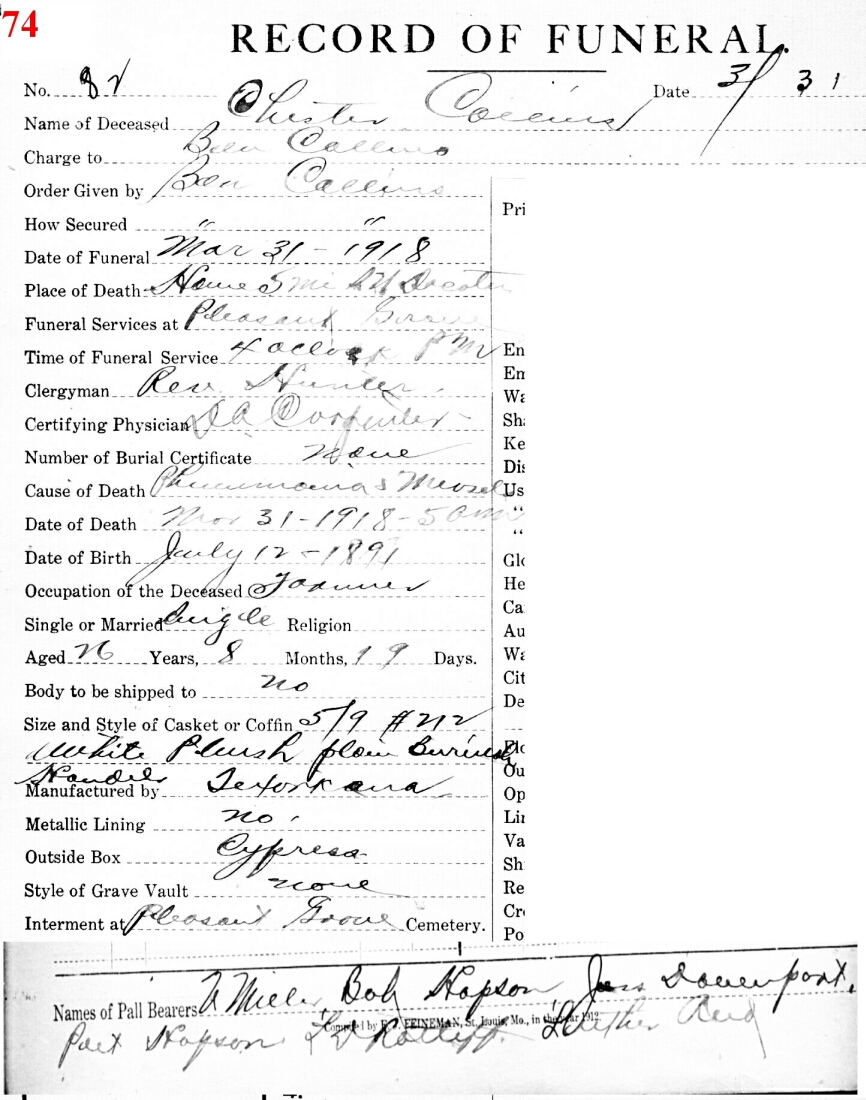 74
RECORD OF FUNERAL.
No. 82 Date 3/31
Name of Deceased Chester Collins
Charge to Ben Collins
Order Given by Ben Collins
How Secured " "
Pri
Date of Funeral Mar 31 - 1918
Place of Death Home 5 mi
Funeral Services at Pleasant Grove
Time of Funeral Service 4 oclock PM
En
Em
Clergyman Rev Hunter
Wa
Certifying Physician Carpenter
Sh
Number of Burial Certificate none
Ke
Dis
Cause of Death Phneumonia & Meosels
Us
Date of Death Mar 31-1918-5 am
" "
Date of Birth July 12 - 1891
Glo
Occupation of the Deceased Farmer
He
Ca
Single or Married Single Religion
Au
Aged 26 Years, 8 Months, 19 Days.
Wa
Cit
Body to be shipped to no
De
Size and Style of Casket or Coffin 5/9 #212
White Plush plain
Handels
Ou
Manufactured by Texarkana
Op
Metallic Lining no
Lin
Va
Outside Box Cypress
Sh
Style of Grave Vault none
Re
Cr
Interment at Pleasant Grove Cemetery.
Po
Names of Pall Bearers Miller Bob Hopson Davenport,
Compiled by F. J. FEINEMAN, St. Louis, Mo., in the year 1912
Hopson Ratliff Luther